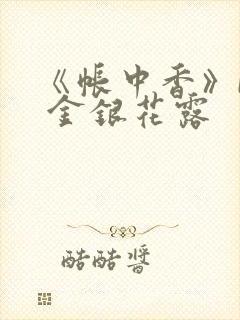 《帐中香》
金银花露
酷酷酱